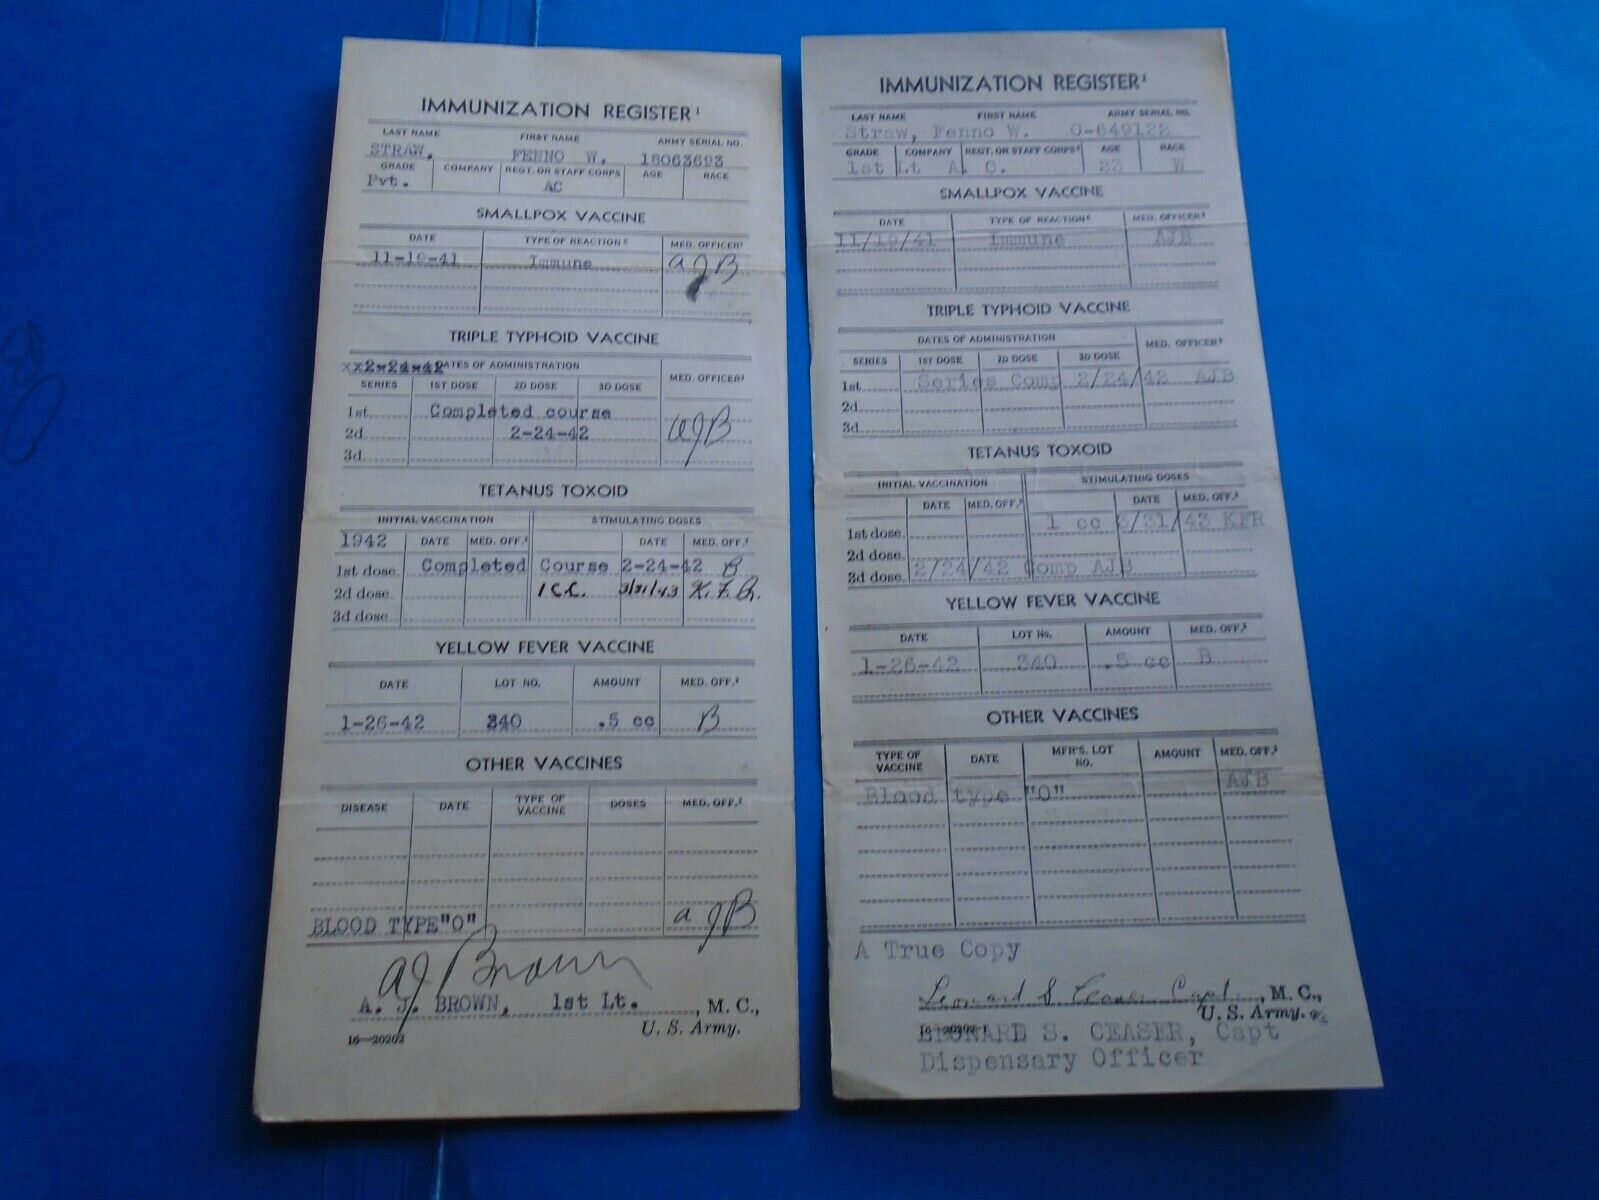 IMMUNIZATION REGISTER¹
LAST NAME FIRST NAME ARMY SERIAL NO.
STRAW, FENNO W. 18063693
GRADE COMPANY REGT. OR STAFF CORPS AGE RACE
Pvt. AC
SMALLPOX VACCINE
DATE TYPE OF REACTION² MED. OFFICER³
11-19-41 Immune AJB
TRIPLE TYPHOID VACCINE
xx2-24-42 DATES OF ADMINISTRATION
SERIES 1ST DOSE 2D DOSE 3D DOSE MED. OFFICER³
1st Completed course
2d 2-24-42 AJB
3d
TETANUS TOXOID
INITIAL VACCINATION STIMULATING DOSES
1942 DATE MED. OFF.³ DATE MED. OFF.³
1st dose Completed Course 2-24-42 B
2d dose 1 C.C. 3/31/43 K. F. R.
3d dose
YELLOW FEVER VACCINE
DATE LOT NO. AMOUNT MED. OFF.³
1-26-42 340 .5 cc B
OTHER VACCINES
DISEASE DATE TYPE OF VACCINE DOSES MED. OFF.³
BLOOD TYPE"O" AJB
AJ Brown
A. J. BROWN, 1st Lt. , M. C.,
U. S. Army.
16—20202
IMMUNIZATION REGISTER¹
LAST NAME FIRST NAME ARMY SERIAL NO.
Straw, Fenno W. O-649122
GRADE COMPANY REGT. OR STAFF CORPS² AGE RACE
1st Lt A. C. 23 W
SMALLPOX VACCINE
DATE TYPE OF REACTION⁴ MED. OFFICER³
11/19/41 Immune AJB
TRIPLE TYPHOID VACCINE
DATES OF ADMINISTRATION
SERIES 1ST DOSE 2D DOSE 3D DOSE MED. OFFICER³
1st Series Comp 2/24/42 AJB
2d
3d
TETANUS TOXOID
INITIAL VACCINATION STIMULATING DOSES
DATE MED. OFF.³ DATE MED. OFF.³
1st dose 1 cc 3/31/43 KFR
2d dose
3d dose 2/24/42 Comp AJB
YELLOW FEVER VACCINE
DATE LOT No. AMOUNT MED. OFF.³
1-26-42 340 .5 cc B
OTHER VACCINES
TYPE OF VACCINE DATE MFR'S. LOT NO. AMOUNT MED. OFF.³
Blood type "O" AJB
A True Copy
Leonard S Ceaser Capt. , M. C.,
U. S. Army.
LEONARD S. CEASER, Capt
Dispensary Officer